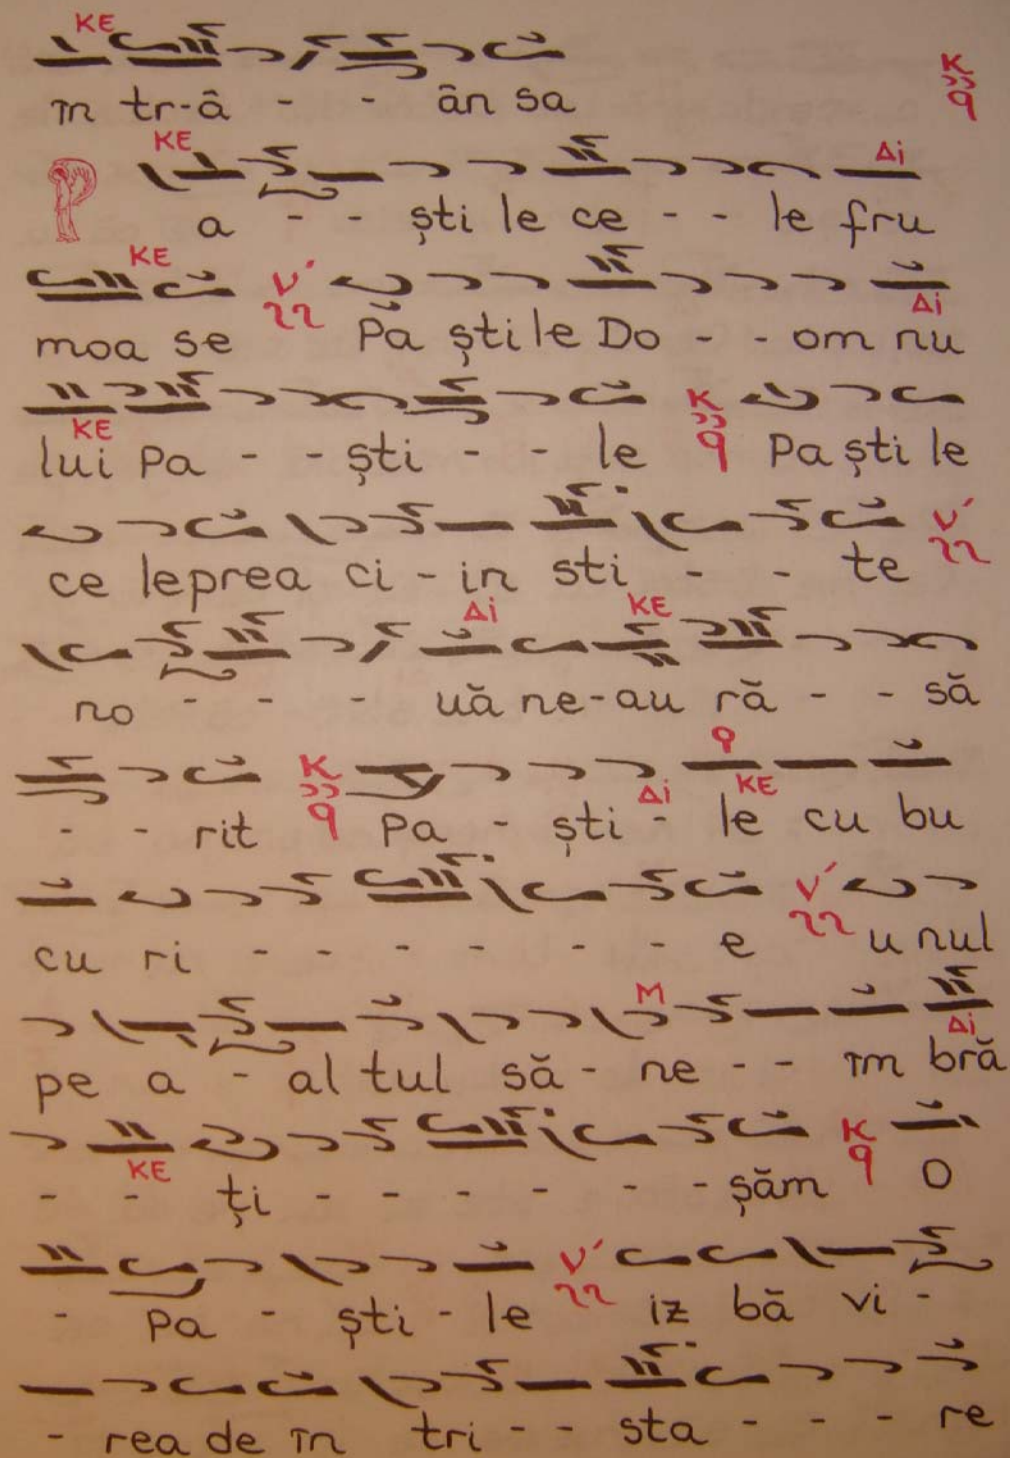 KE
în tr-â - - ân sa K q
KE Δi
P a - - ști le ce - - le fru
KE
moa se ν΄ Pa ști le Do - - om nu
Δi
lui Pa - - ști - - le K q Pa ști le
KE
ce le prea ci - in sti - - te ν΄
KE Δi
no - - - uă ne-au ră - - să
- - rit K q Pa - ști - le cu bu
Δi KE
cu ri - - - - - - e ν΄ u nul
M
pe a - al tul să - ne - - îm bră
Δi
- - ți - - - - - - șăm K q O
KE
- Pa - ști - le ν΄ iz bă vi -
- rea de în tri - - sta - - - re